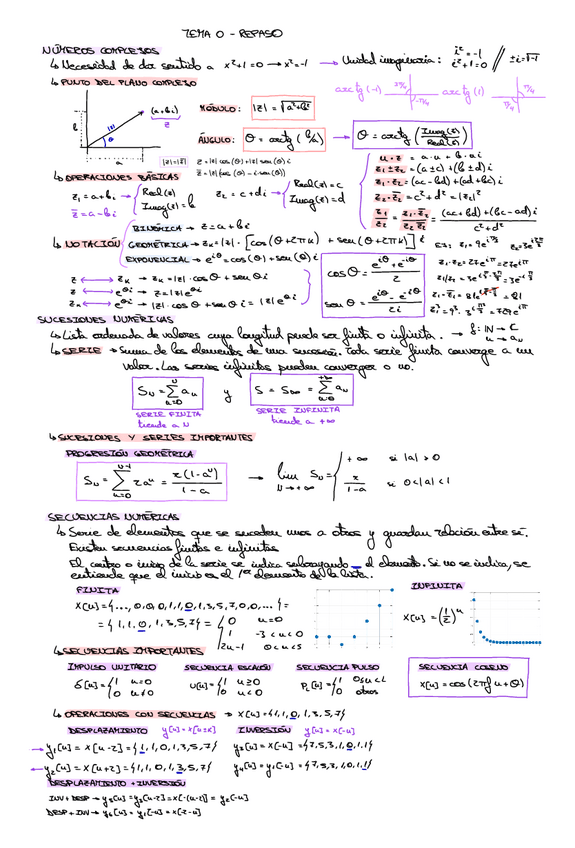 TEMA 0 - REPASO
NÚMEROS COMPLEJOS
↳ Necesidad de dar sentido a x²+1=0 → x²=-1 → Unidad imaginaria: i²=-1 i²+1=0 // ±i=√-1
↳ PUNTO DEL PLANO COMPLEJO
arctg(-1) 3π/4 -π/4 arctg(1) π/4
(a+bi)
z
|z|
θ
b
a
MÓDULO: |z|=√a²+b²
ÁNGULO: θ = arctg (b/a) → θ = arctg (Imag(z)/Real(z))
|z|=|z̄| z=|z|cos(θ)+|z|sen(θ)i
z̄=|z|cos(θ)-|z|sen(θ)i
↳ OPERACIONES BÁSICAS
z₁=a+bi → Real(z)=a Imag(z)=b z₂=c+di → Real(z)=c Imag(z)=d
z̄=a-bi
u·z = a·u + b·ui
z₁±z₂ = (a±c)+(b±d)i
z₁·z₂ = (ac-bd)+(ad+bc)i
z₂·z̄₂ = c²+d² = |z₂|²
z₁/z₂ = z₁·z̄₂/z₂·z̄₂ = (ac+bd)+(bc-ad)i/c²+d²
↳ NOTACIÓN
BINÓMICA → z=a+bi
GEOMÉTRICA → zₖ=|z|·[cos(θ+2πk) + sen(θ+2πk)]i
EXPONENCIAL → e^iθ=cos(θ)+sen(θ)i
z ↔ zₖ → zₖ=|z|·cosθ+senθi
z ↔ e^θi → z=|z|e^θi
zₖ ↔ e^θi → |z|·cosθ+senθi=|z|e^θi
cosθ = e^iθ+e^-iθ/2
senθ = e^iθ-e^-iθ/2i
SUCESIONES NUMÉRICAS
↳ Lista ordenada de valores cuya longitud puede ser finita o infinita. → f: ℕ → C
n → aₙ
↳ SERIE → Suma de los elementos de una sucesión. Toda serie finita converge a un
valor. Las series infinitas pueden converger o no.
S_N = Σ_{n=0}^{N} aₙ y S = S∞ = Σ_{n=0}^{+∞} aₙ
SERIE FINITA SERIE INFINITA
tiende a N tiende a +∞
↳ SUCESIONES Y SERIES IMPORTANTES
PROGRESIÓN GEOMÉTRICA
S_N = Σ_{n=0}^{N-1} raⁿ = r(1-a^N)/1-a → lim_{N→+∞} S_N = { +∞ si |a|>0
r/1-a si 0<|a|<1
SECUENCIAS NUMÉRICAS
↳ Serie de elementos que se suceden unos a otros y guardan relación entre sí.
Existen secuencias finitas e infinitas
El centro o inicio de la serie se indica subrayando el elemento. Si no se indica, se
entiende que el inicio es el 1er elemento de la lista.
FINITA INFINITA
x[n]={..., 0, 0, 0, 1, 1, 0, 1, 3, 5, 7, 0, 0, ...}=
={1, 1, 0, 1, 3, 5, 7} = { 0 n=0
1 -3<n<0
2n-1 0<n<5
x[n]=(1/2)ⁿ
↳ SECUENCIAS IMPORTANTES
IMPULSO UNITARIO SECUENCIA ESCALÓN SECUENCIA PULSO SECUENCIA COSENO
δ[n]={1 n=0 u[n]={1 n≥0 P_L[n]={1 0≤n<L x[n]=cos(2πfn+θ)
0 n≠0 0 n<0 0 otros
↳ OPERACIONES CON SECUENCIAS → x[n]={1, 1, 0, 1, 3, 5, 7}
DESPLAZAMIENTO y[n]=x[n±k] INVERSIÓN y[n]=x[-n]
→ y₁[n]=x[n-2]={1, 1, 0, 1, 3, 5, 7} y₃[n]=x[-n]={7, 5, 3, 1, 0, 1, 1}
← y₂[n]=x[n+2]={1, 1, 0, 1, 3, 5, 7} y₄[n]=y₁[-n]={7, 5, 3, 1, 0, 1, 1}
DESPLAZAMIENTO + INVERSIÓN
INV+DESP → y₅[n]=y₃[n-2]=x[-(n-2)]=y₂[-n]
DESP+INV → y₆[n]=y₁[-n]=x[-2-n]